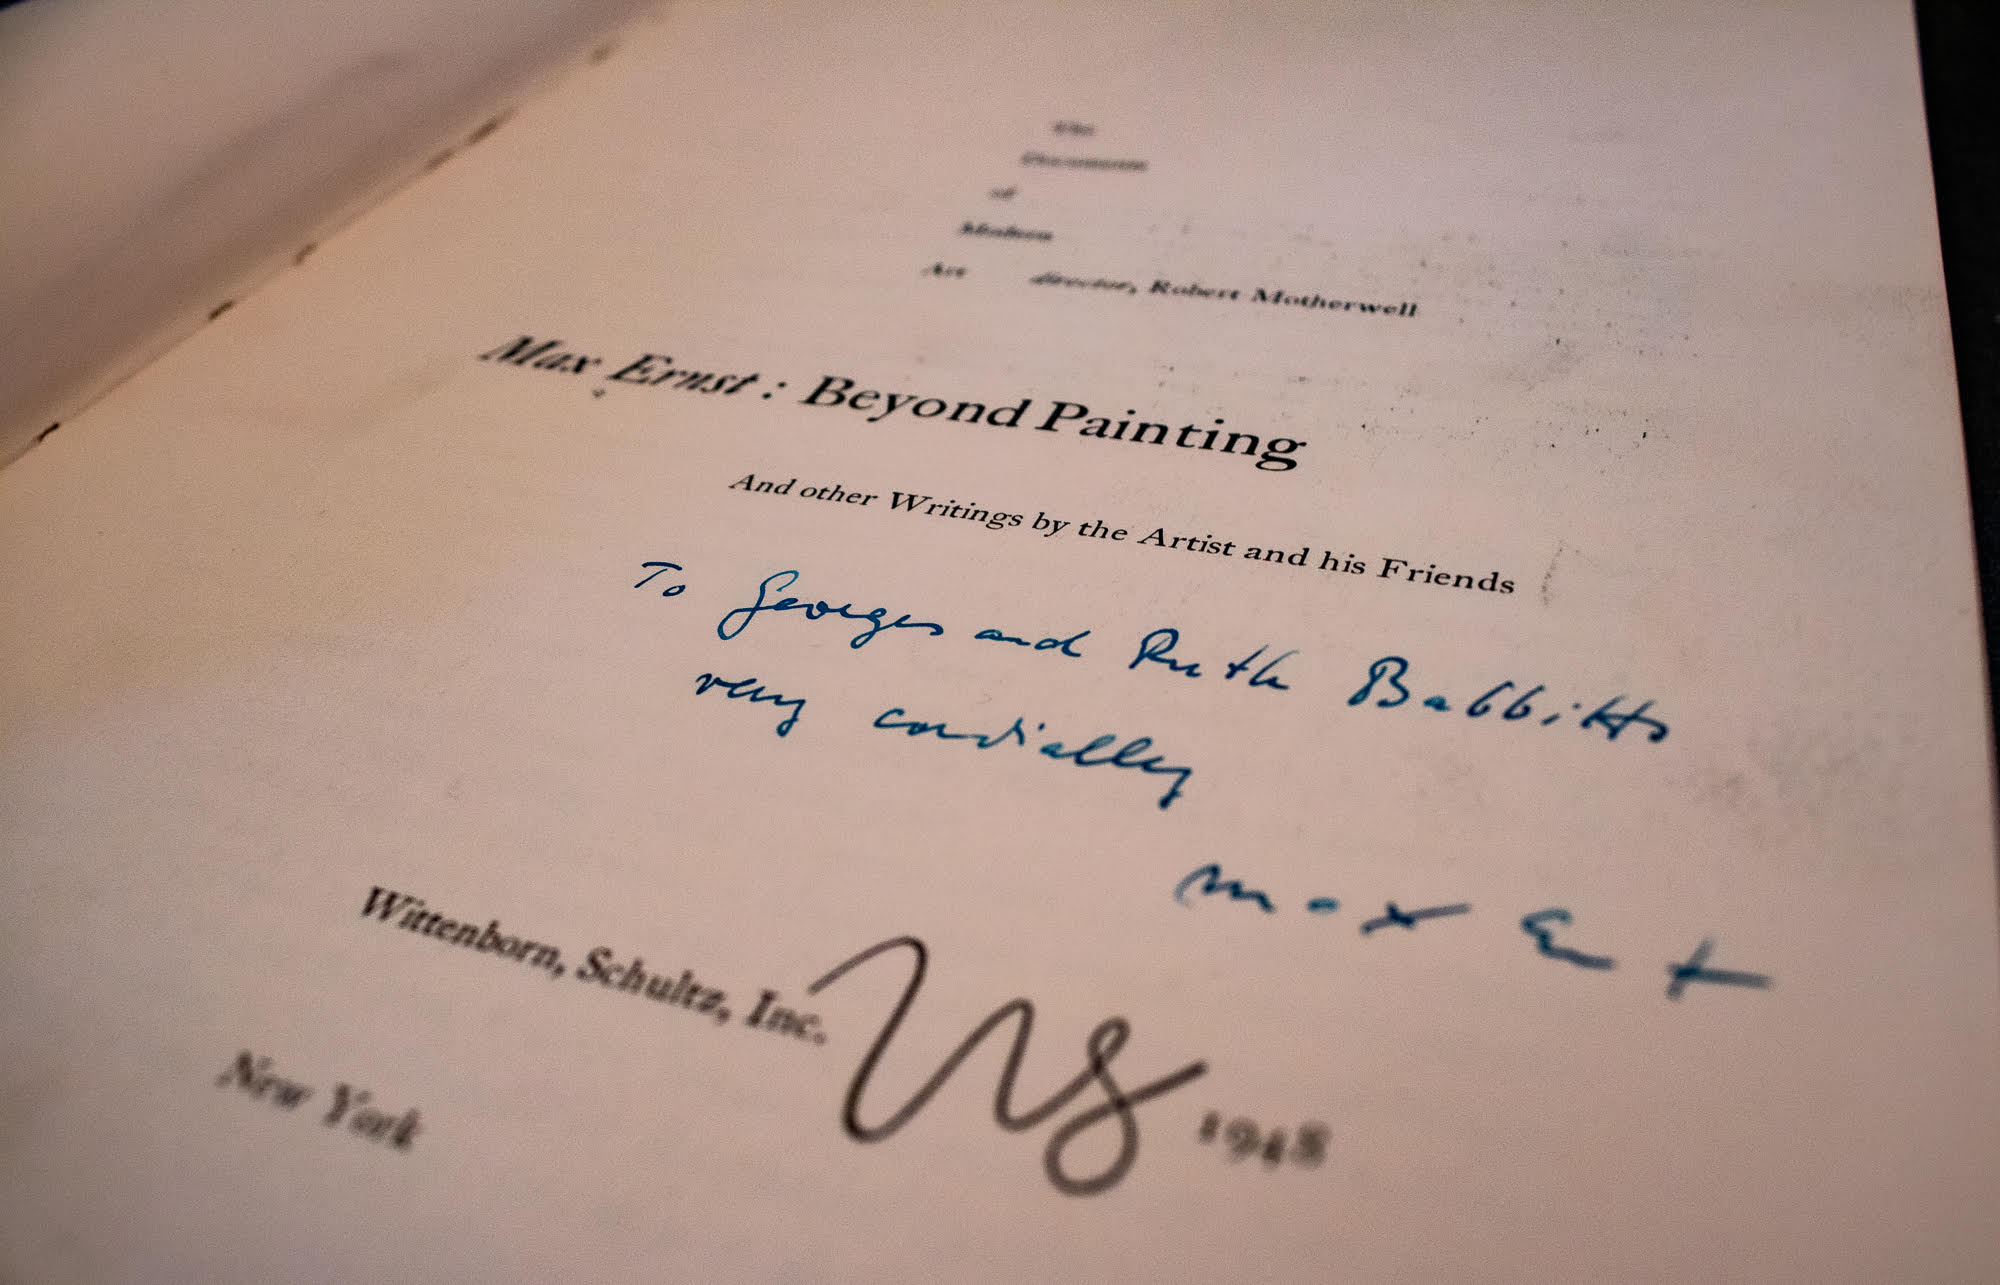 The
Documents
of
Modern
Art director, Robert Motherwell
Max Ernst : Beyond Painting
And other Writings by the Artist and his Friends
To Georges and Ruth Babbitts
very cordially
max Ernst
Wittenborn, Schultz, Inc.
WS
1948
New York